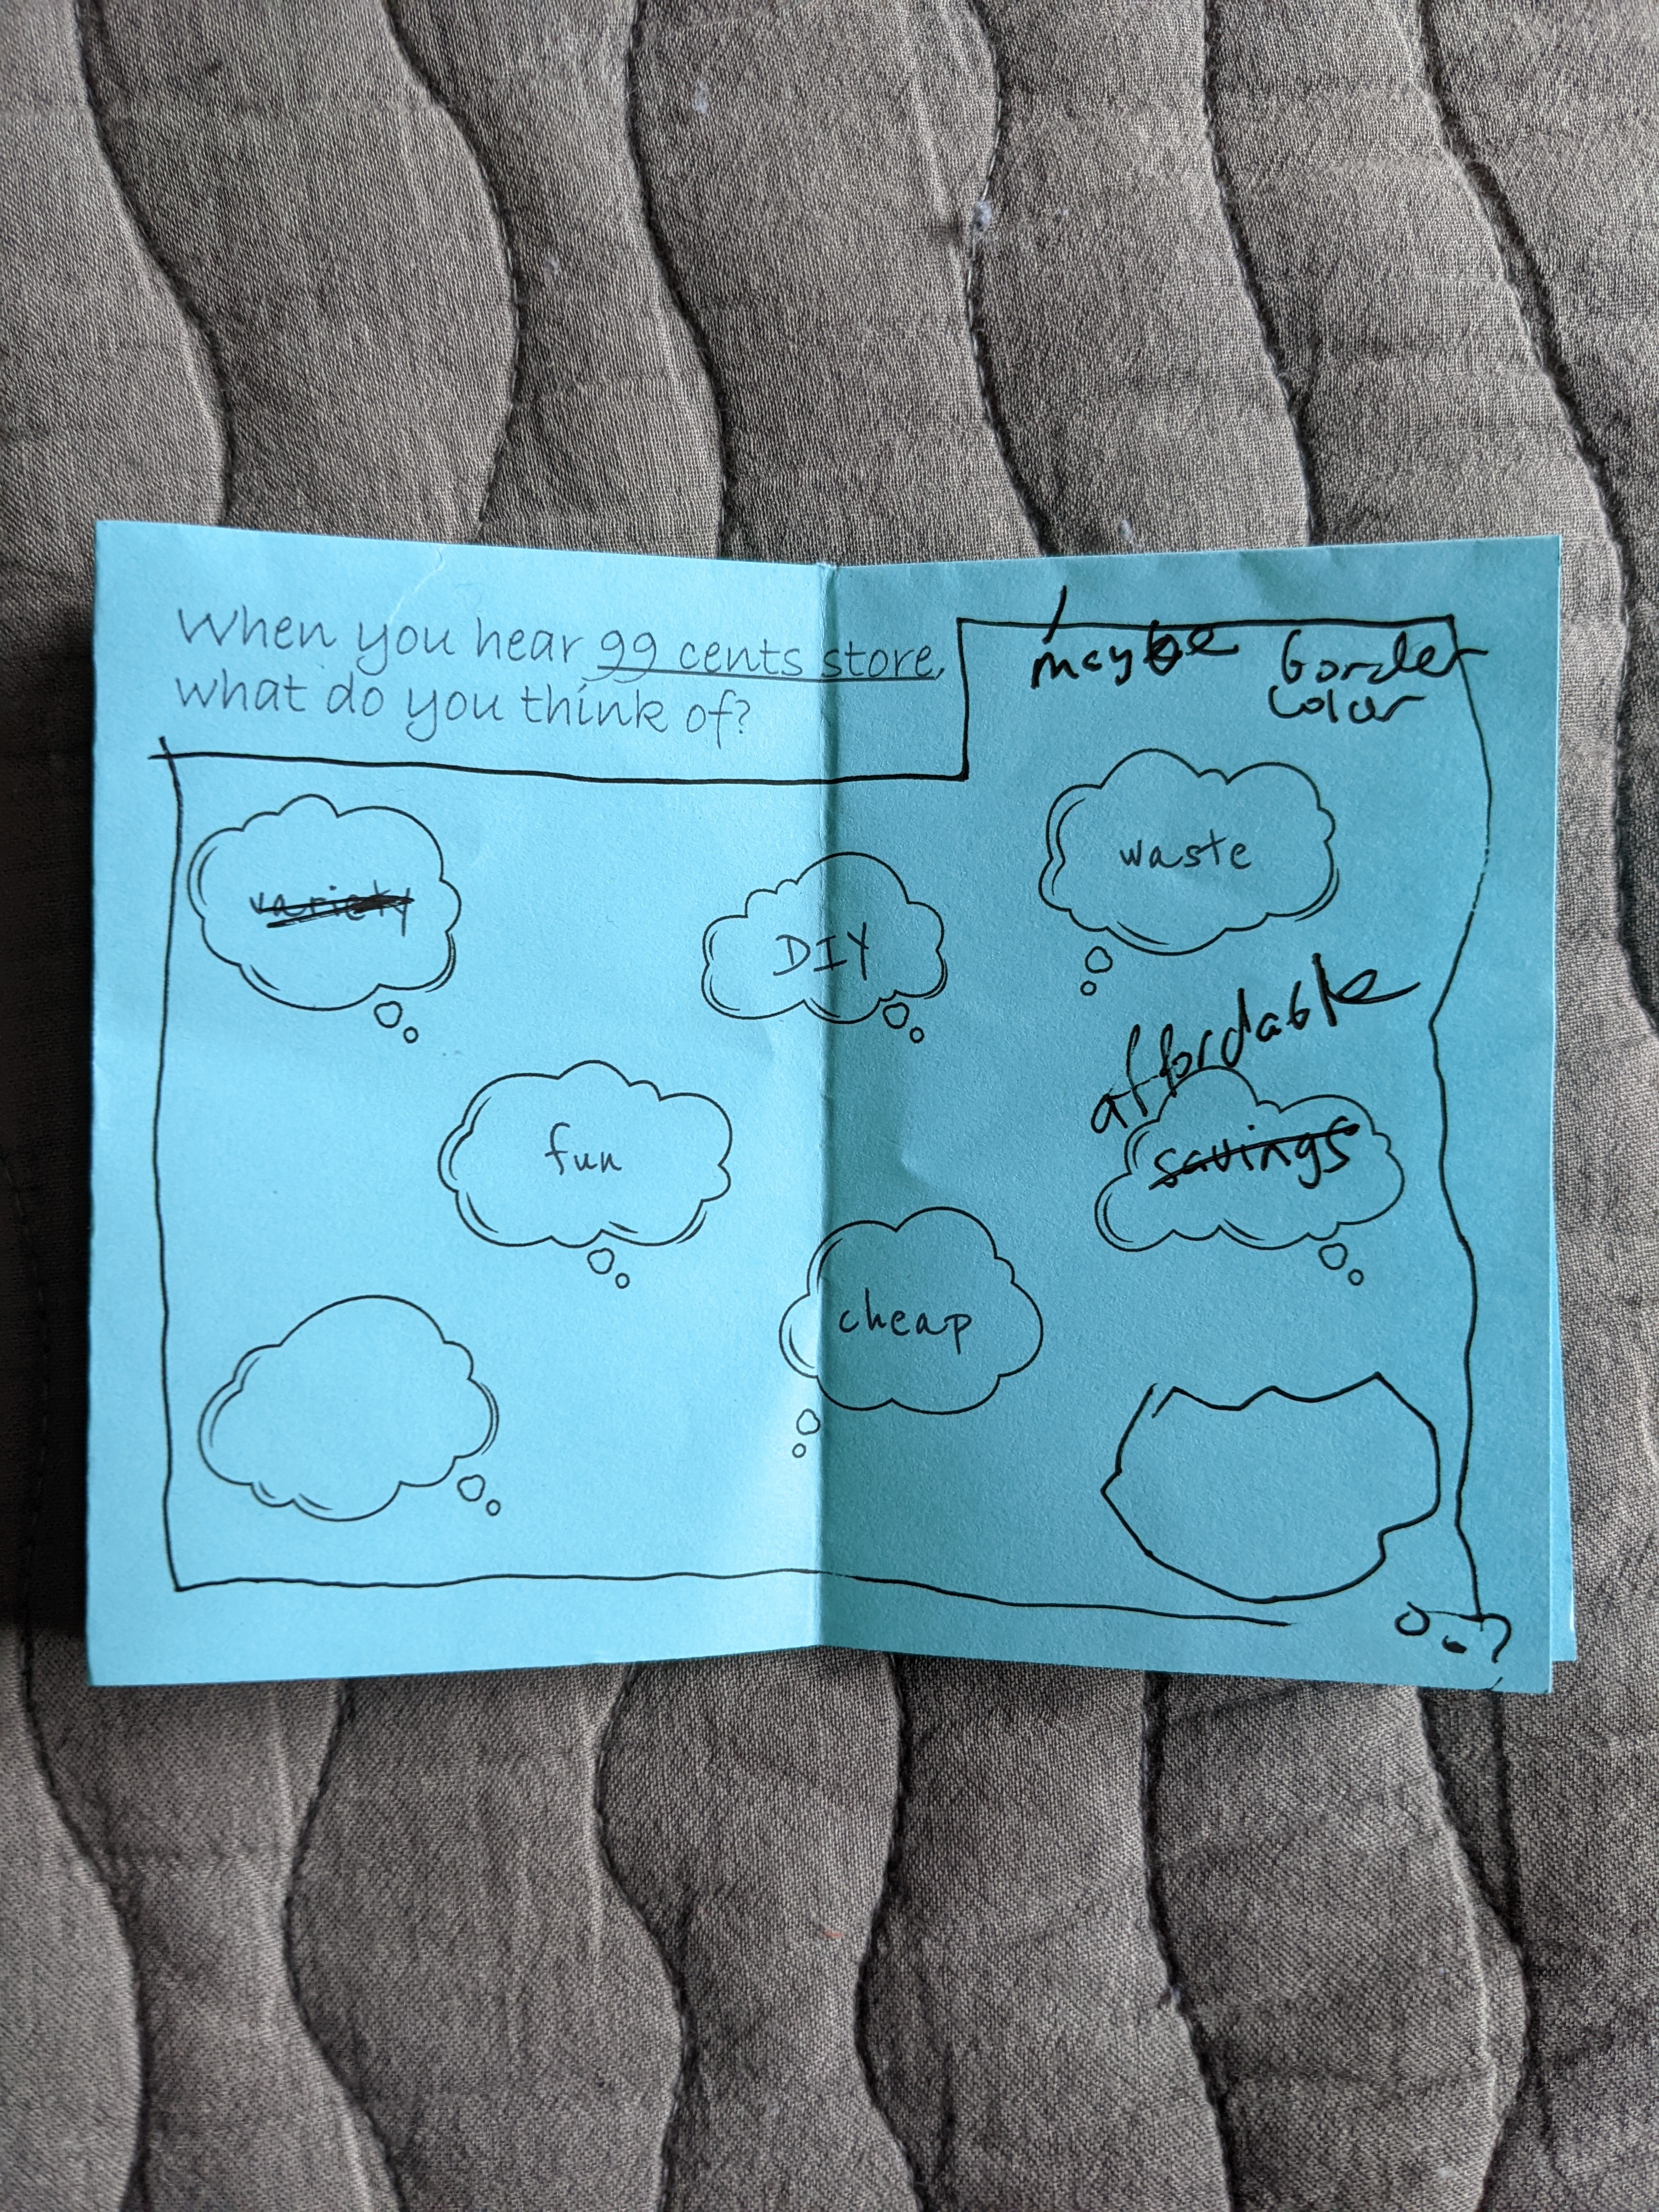 When you hear 99 cents store,
what do you think of?
maybe border
color
variety
DIY
waste
fun
affordable
savings
cheap